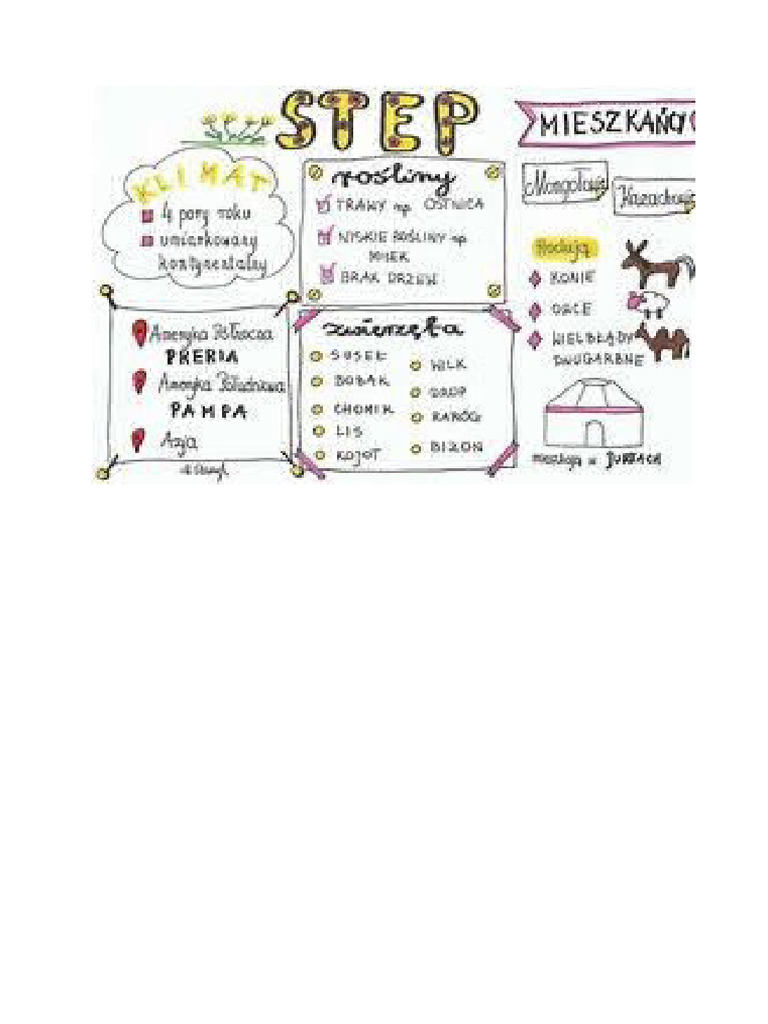 STEP
KLIMAT
4 pory roku
umiarkowany
kontynentalny
rośliny
TRAWY np. OSTNICA
NISKIE ROŚLINY np.
MNIEK
BRAK DRZEW
MIESZKAŃCI
Mongołowie
Kazachowie
Hodują
KONIE
OWCE
WIELBŁĄDY
DWUGARBNE
mieszkają w JURTACH
Ameryka Północna
PRERIA
Ameryka Południowa
PAMPA
Azja
zwierzęta
SUSEŁ
BOBAK
CHOMIK
LIS
KOJOT
WILK
DROP
RARÓG
BIZON